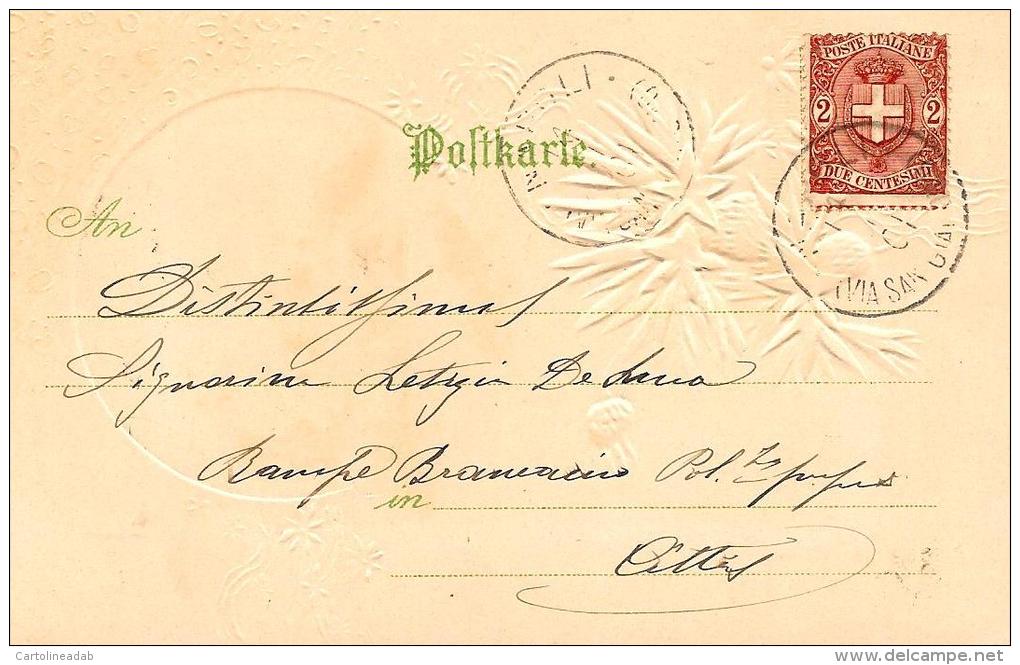 POSTE ITALIANE
2 2
DUE CENTESIMI
Postkarte.
(VIA SAN GIA
An
Distintissima
Signorina Letizia De Luca
Rampe Brancaccio Pol.
in
Città
Cartolineadab
delcampe.net